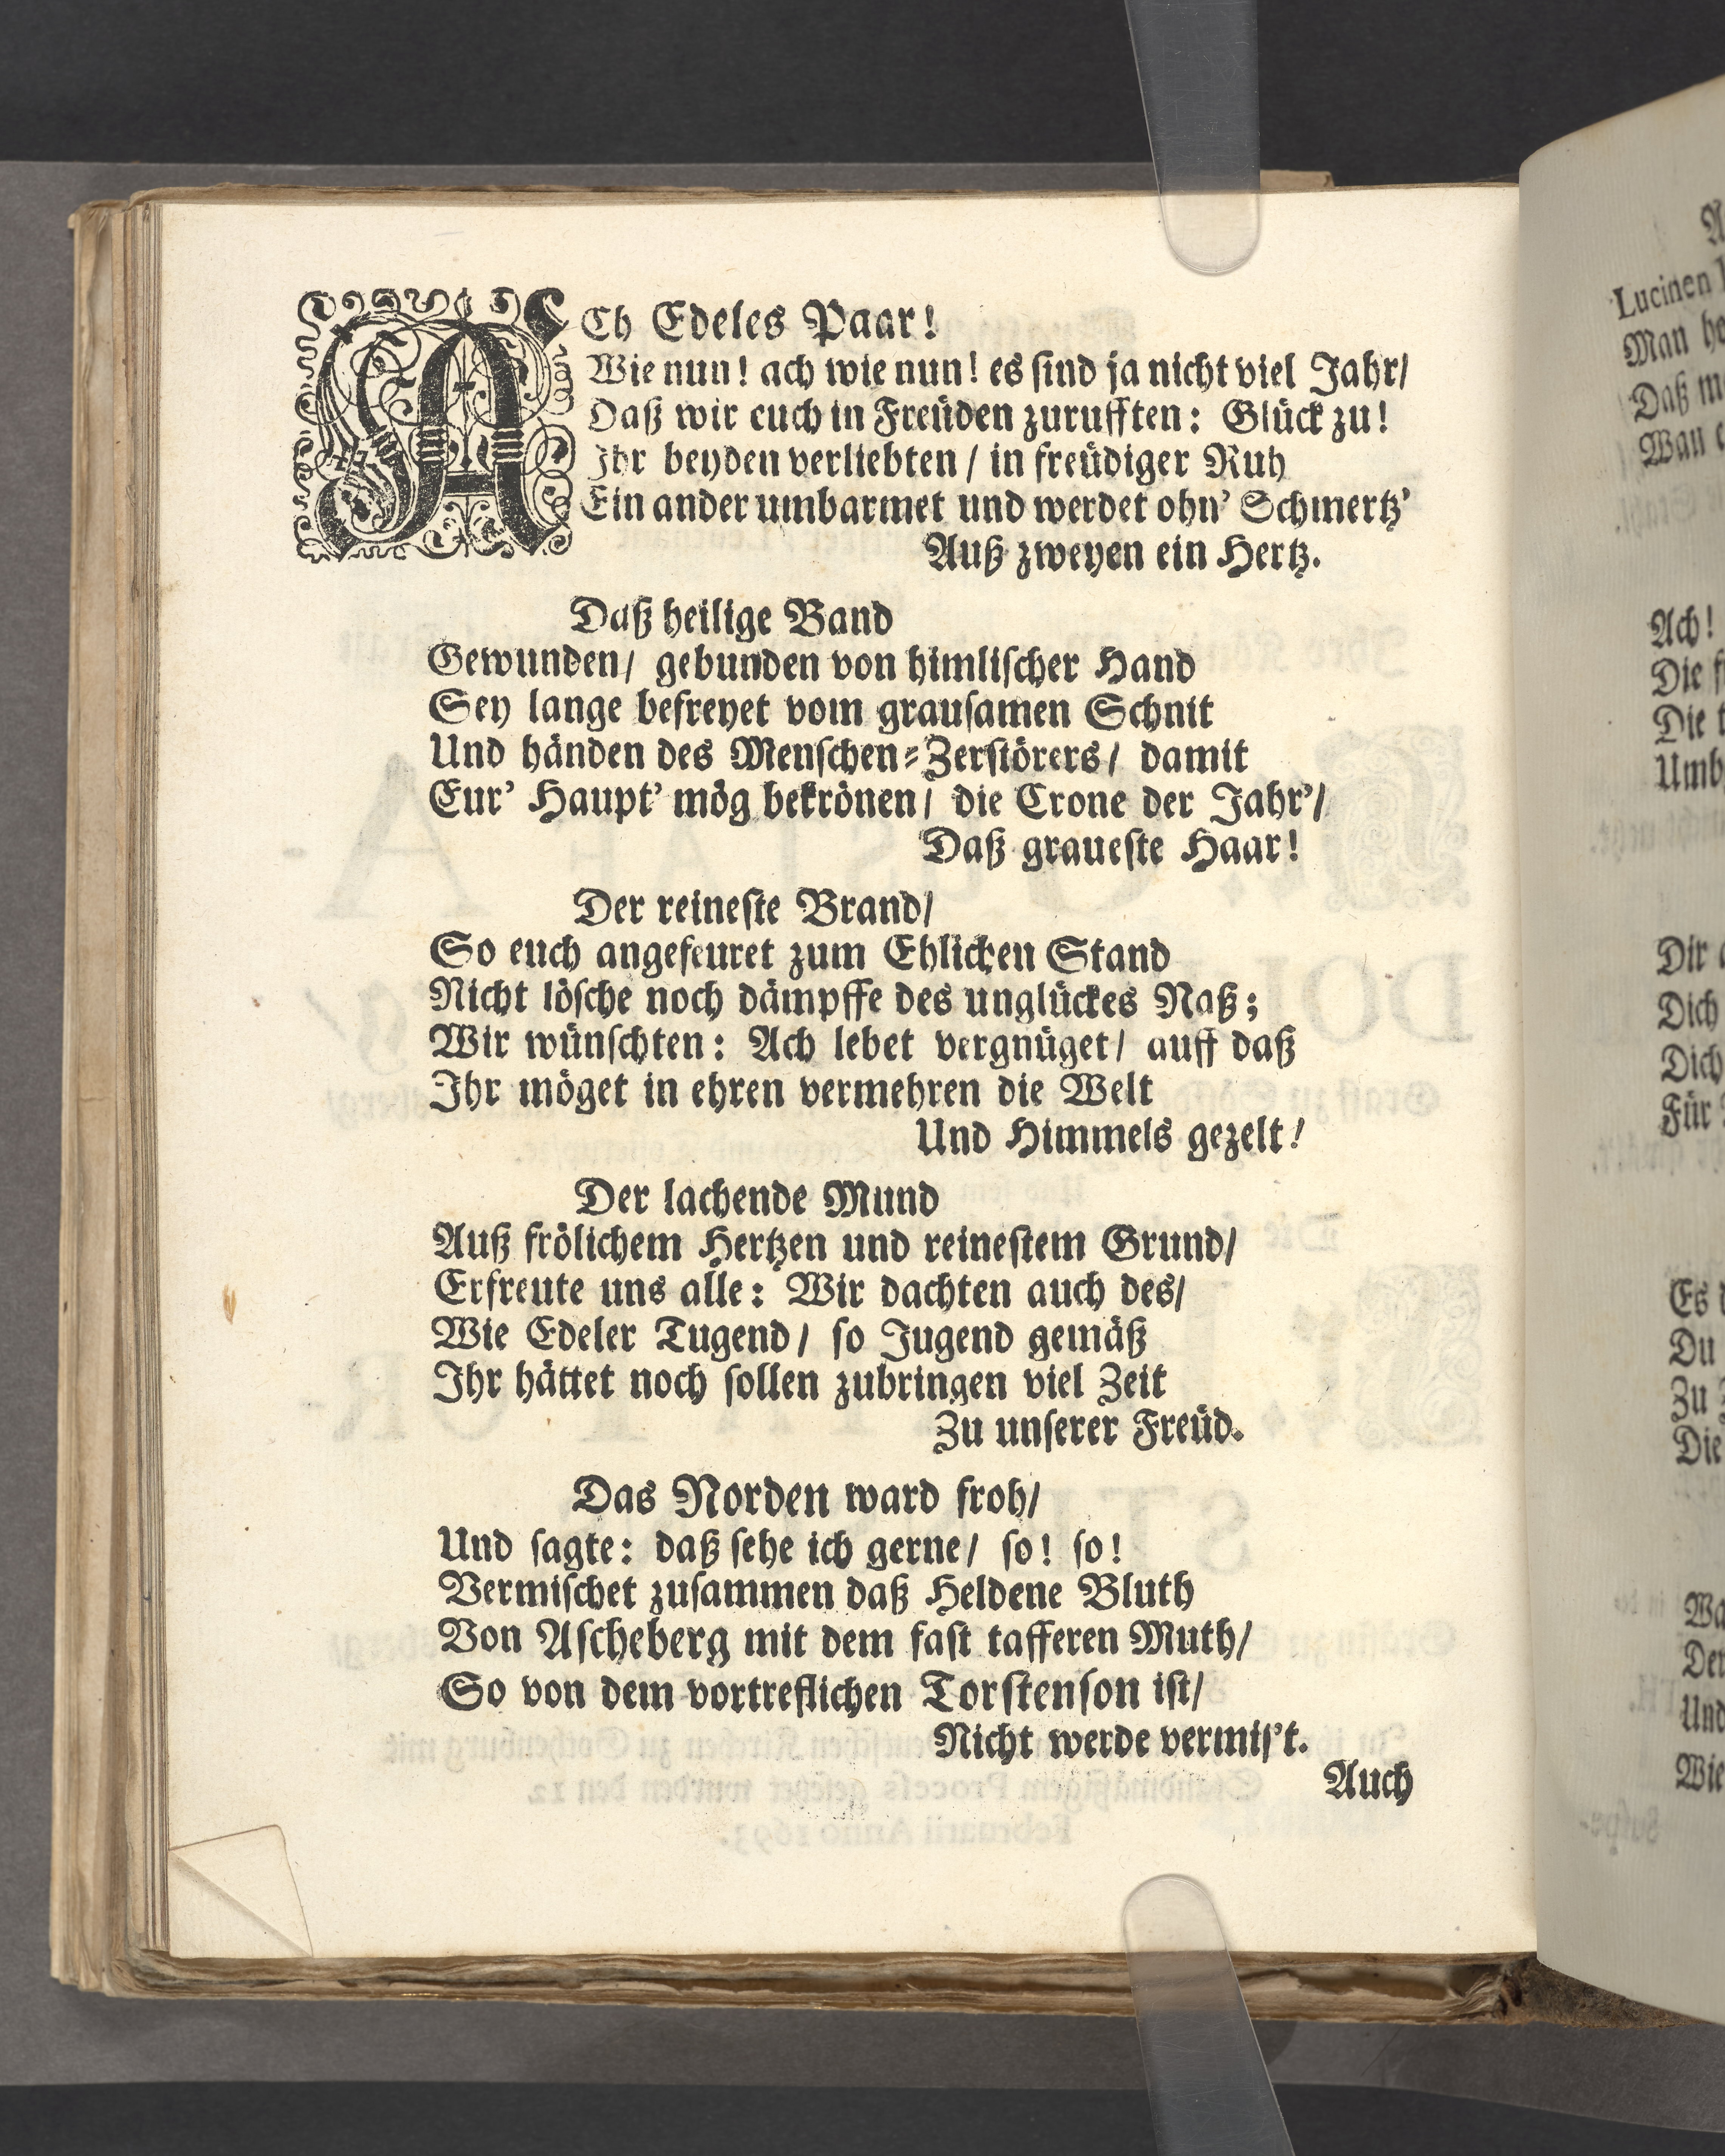 ACh Edeles Paar!
Wie nun! ach wie nun! es sind ja nicht viel Jahr/
Daß wir euch in Freüden zurufften: Glück zu!
Ihr beyden verliebten/ in freüdiger Ruh
Ein ander umbarmet und werdet ohn' Schmertz'
Auß zweyen ein Hertz.
Daß heilige Band
Gewunden/ gebunden von himlischer Hand
Sey lange befreyet vom grausamen Schnit
Und händen des Menschen-Zerstörers/ damit
Eur' Haupt' mög bekrönen/ die Crone der Jahr'/
Daß graueste Haar!
Der reineste Brand/
So euch angefeuret zum Ehlichen Stand
Nicht lösche noch dämpffe des unglückes Naß;
Wir wünschten: Ach lebet vergnüget/ auff daß
Ihr möget in ehren vermehren die Welt
Und Himmels gezelt!
Der lachende Mund
Auß frölichem Hertzen und reinestem Grund/
Erfreute uns alle: Wir dachten auch des/
Wie Edeler Tugend/ so Jugend gemäß
Ihr hättet noch sollen zubringen viel Zeit
Zu unserer Freüd.
Das Norden ward froh/
Und sagte: daß sehe ich gerne/ so! so!
Vermischet zusammen daß Heldene Bluth
Von Ascheberg mit dem fast tafferen Muth/
So von dem vortreflichen Torstenson ist/
Nicht werde vermis't.
Auch
Lucinen
Man
Daß
Ach!
Die
Die
Dir
Dich
Dich
Für
Es
Du
Zu
Die
Und
Wie